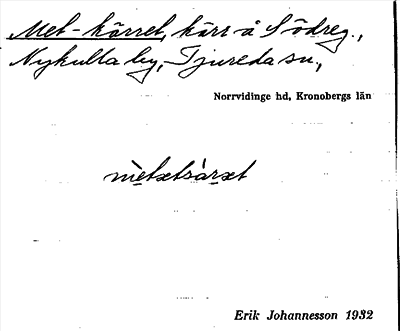 Met-kärret, kärr å Södreg.,
Nykulla by, Tjureda sn,
Norrvidinge hd, Kronobergs län
Erik Johannesson 1932